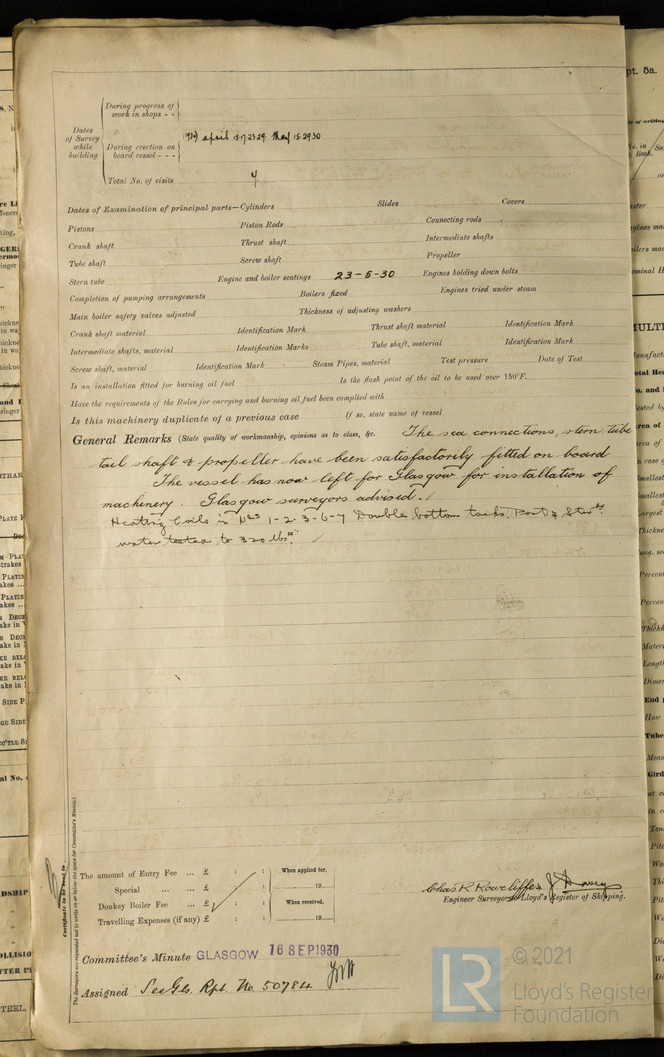 During progress of
work in shops - -
Dates
of Survey
while
building
During erection on
board vessel - - -
(1930) April 15.17.23.29 May 15.29.30
Total No. of visits
Dates of Examination of principal parts—Cylinders Slides Covers
Pistons Piston Rods Connecting rods
Crank shaft Thrust shaft Intermediate shafts
Tube shaft Screw shaft Propeller
Stern tube Engine and boiler seatings 23-5-30 Engines holding down bolts
Completion of pumping arrangements Boilers fixed Engines tried under steam
Main boiler safety valves adjusted Thickness of adjusting washers
Crank shaft material Identification Mark Thrust shaft material Identification Mark
Intermediate shafts, material Identification Marks Tube shaft, material Identification Mark
Screw shaft, material Identification Mark Steam Pipes, material Test pressure Date of Test
Is an installation fitted for burning oil fuel Is the flash point of the oil to be used over 150°F.
Have the requirements of the Rules for carrying and burning oil fuel been complied with
Is this machinery duplicate of a previous case If so, state name of vessel
General Remarks (State quality of workmanship, opinions as to class, &c. The sea connections, stern tube
tail shaft & propeller have been satisfactorily fitted on board
The vessel has now left for Glasgow for installation of
machinery. Glasgow surveyors advised.
Heating Coils in Nos 1-2-3-6-7 Double bottom tanks. Port & Starbd
water tested to 320 lbs.
The amount of Entry Fee ... £ : : When applied for,
Special ... ... £ : : 19
Donkey Boiler Fee ... £ : : When received,
Travelling Expenses (if any) £ : : 19
Chas R Rowcliffe
Engineer Surveyor to Lloyd's Register of Shipping.
Committee's Minute GLASGOW 16 SEP 1930
Assigned See Gls. Rpt. No. 50784
Certificate to be sent to
The Surveyors are requested not to write on or below the space for Committee's Minute.
LR
© 2021
Lloyd's Register
Foundation